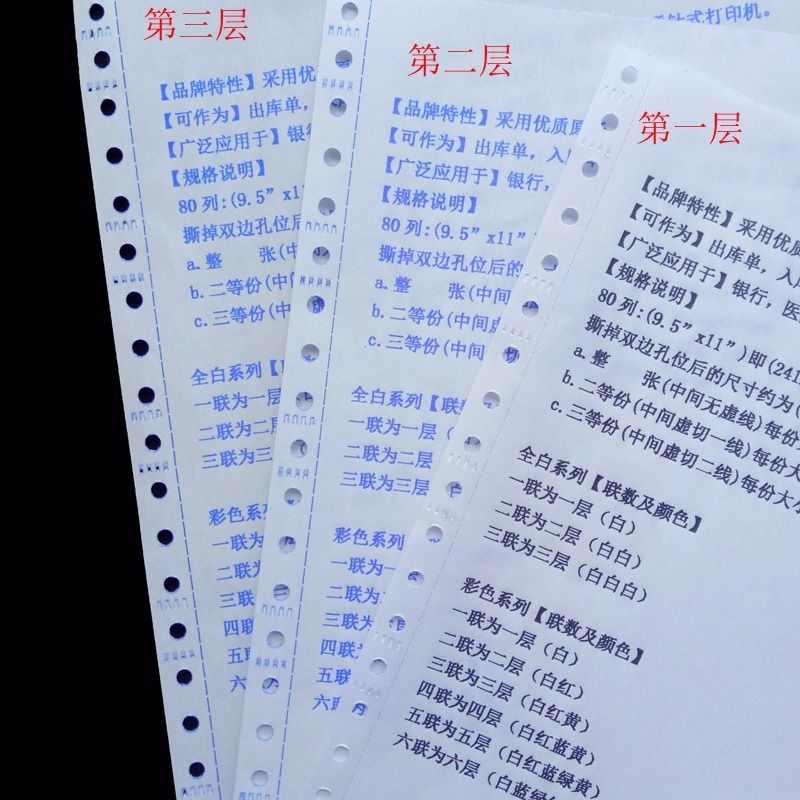 第三层
【品牌特性】采用优
【可作为】出库单，
【广泛应用于】银行
【规格说明】
80列:(9.5”x1
撕掉双边孔位后
a.整 张(中
b.二等份(中
c.三等份(中
全白系列【
一联为一层
二联为二层
三联为三层
彩色系列
一联为一
二联为
三联
四联
五联
六
第二层
针式打印机。
【品牌特性】采用优质原
【可作为】出库单，入
【广泛应用于】银行，
【规格说明】
80列:(9.5”x11”
撕掉双边孔位后的
a.整 张(中间
b.二等份(中间
c.三等份(中间
全白系列【联
一联为一层（
二联为二层
三联为三层
彩色系列
一联为一
二联为
三联为
四联
五联
六
第一层
【品牌特性】采用优质
【可作为】出库单，入
【广泛应用于】银行，医
【规格说明】
80列:(9.5”x11”)即(241
撕掉双边孔位后的尺寸约为(
a.整 张(中间无虚线)每份
b.二等份(中间虚切一线)每份大
c.三等份(中间虚切二线)每份大小
全白系列【联数及颜色】
一联为一层（白）
二联为二层（白白）
三联为三层（白白白）
彩色系列【联数及颜色】
一联为一层（白）
二联为二层（白红）
三联为三层（白红黄）
四联为四层（白红蓝黄）
五联为五层（白红蓝绿黄）
六联为六层（白蓝绿黄